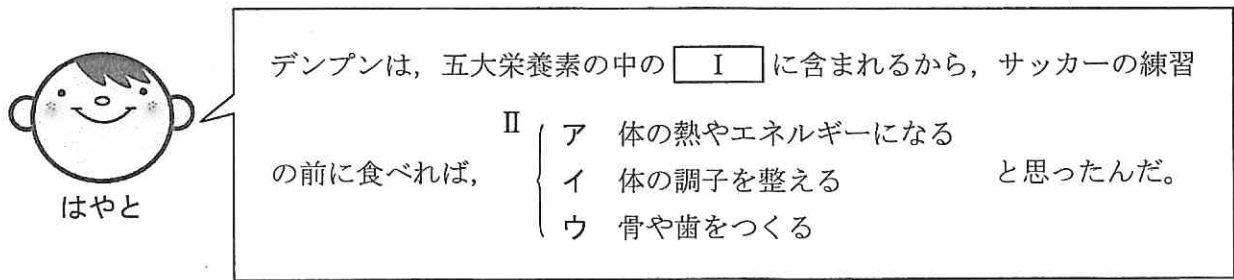 デンプンは，五大栄養素の中の Ⅰ に含まれるから，サッカーの練習
の前に食べれば，
Ⅱ
ア 体の熱やエネルギーになる
イ 体の調子を整える
ウ 骨や歯をつくる
と思ったんだ。
はやと